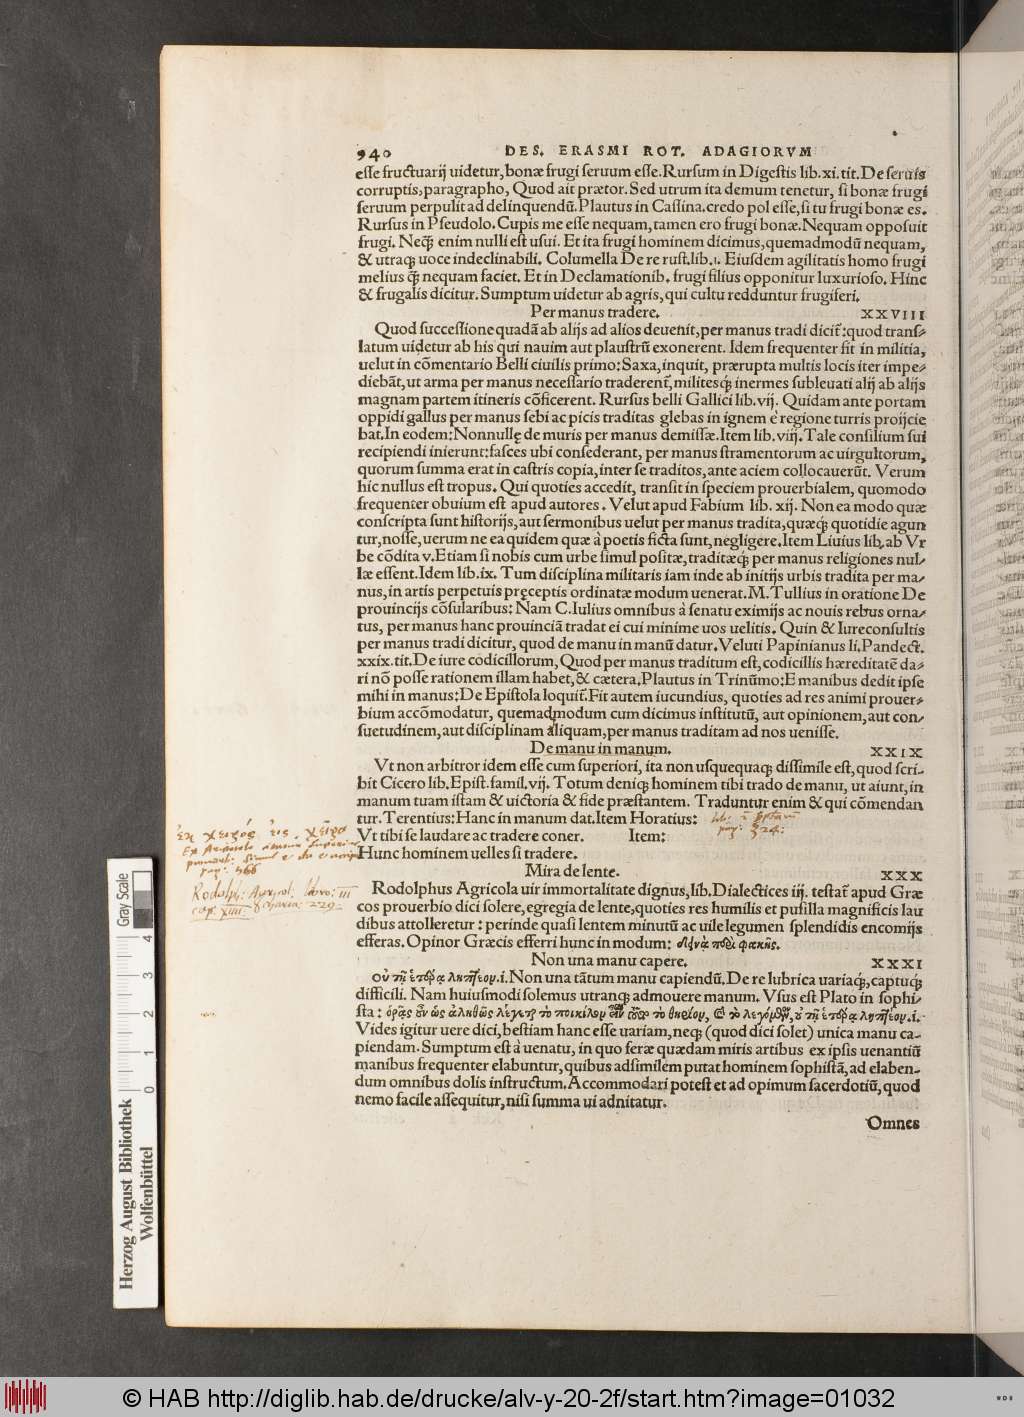 940 DES. ERASMI ROT. ADAGIORVM
esse fructuarij uidetur, bonæ frugi seruum esse. Rursum in Digestis lib. xi. tit. De seruis
corruptis, paragrapho, Quod ait prætor. Sed utrum ita demum tenetur, si bonæ frugi
seruum perpulit ad delinquendũ. Plautus in Cassina. credo pol esse, si tu frugi bonæ es.
Rursus in Pseudolo. Cupis me esse nequam, tamen ero frugi bonæ. Nequam opposuit
frugi. Neq̃ enim nulli est usui. Et ita frugi hominem dicimus, quemadmodũ nequam,
& utraq; uoce indeclinabili. Columella De re rust. lib. 1. Eiusdem agilitatis homo frugi
melius q̃ nequam faciet. Et in Declamationib. frugi filius opponitur luxurioso. Hinc
& frugalis dicitur. Sumptum uidetur ab agris, qui cultu redduntur frugiferi.
Per manus tradere. XXVIII
Quod successione quadã ab alijs ad alios deuenit, per manus tradi dicit̃: quod trans-
latum uidetur ab his qui nauim aut plaustrũ exonerent. Idem frequenter fit in militia,
uelut in cõmentario Belli ciuilis primo: Saxa, inquit, prærupta multis locis iter impe-
diebãt, ut arma per manus necessario traderent̃, militesq; inermes subleuati alij ab alijs
magnam partem itineris cõficerent. Rursus belli Gallici lib. vij. Quidam ante portam
oppidi gallus per manus sebi ac picis traditas glebas in ignem è regione turris proijcie
bat. In eodem: Nonnullę de muris per manus demissæ. Item lib. viij. Tale consilium sui
recipiendi inierunt: fasces ubi consederant, per manus stramentorum ac uirgultorum,
quorum summa erat in castris copia, inter se traditos, ante aciem collocauerũt. Verum
hic nullus est tropus. Qui quoties accedit, transit in speciem prouerbialem, quomodo
frequenter obuium est apud autores. Velut apud Fabium lib. xij. Non ea modo quæ
conscripta sunt historijs, aut sermonibus uelut per manus tradita, quæq; quotidie agun
tur, nosse, uerum ne ea quidem quæ à poetis ficta sunt, negligere. Item Liuius lib. ab Vr
be cõdita v. Etiam si nobis cum urbe simul positæ, traditæq; per manus religiones nul-
læ essent. Idem lib. ix. Tum disciplina militaris iam inde ab initijs urbis tradita per ma-
nus, in artis perpetuis pręceptis ordinatæ modum uenerat. M. Tullius in oratione De
prouincijs cõsularibus: Nam C. Iulius omnibus à senatu eximijs ac nouis rebus orna-
tus, per manus hanc prouinciã tradat ei cui minime uos uelitis. Quin & Iureconsultis
per manus tradi dicitur, quod de manu in manũ datur. Veluti Papinianus li. Pandect.
xxix. tit. De iure codicillorum, Quod per manus traditum est, codicillis hæreditatẽ da-
ri nõ posse rationem illam habet, & cætera. Plautus in Trinũmo: E manibus dedit ipse
mihi in manus: De Epistola loquit̃. Fit autem iucundius, quoties ad res animi prouer-
bium accõmodatur, quemadmodum cum dicimus institutũ, aut opinionem, aut con-
suetudinem, aut disciplinam aliquam, per manus traditam ad nos uenisse.
De manu in manum. XXIX
Vt non arbitror idem esse cum superiori, ita non usquequaq; dissimile est, quod scri-
bit Cicero lib. Epist. famil. vij. Totum deniq; hominem tibi trado de manu, ut aiunt, in
manum tuam istam & uictoria & fide præstantem. Traduntur enim & qui cõmendan
tur. Terentius: Hanc in manum dat. Item Horatius:
Vt tibi se laudare ac tradere coner. Item:
Hunc hominem uelles si tradere.
pag: 324:
ἐκ χειρός εἰς χεῖρα
pag: 566
Mira de lente. XXX
Rodolph: Agricol: libro: III
cap: XIII 229
Rodolphus Agricola uir immortalitate dignus, lib. Dialectices iij. testat̃ apud Græ
cos prouerbio dici solere, egregia de lente, quoties res humilis et pusilla magnificis lau
dibus attolleretur: perinde quasi lentem minutũ ac uile legumen splendidis encomijs
efferas. Opinor Græcis efferri hunc in modum: δεινὰ περὶ φακῆς.
Non una manu capere. XXXI
οὐ τῇ ἑτέρᾳ ληπτέον. i. Non una tãtum manu capiendũ. De re lubrica uariaq;, captuq;
difficili. Nam huiusmodi solemus utranq; admouere manum. Vsus est Plato in sophi-
sta: ὁρᾷς οὖν ὡς ἀληθῶς λέγεται τὸ ποικίλον εἶναι τοῦτο τὸ θηρίον, καὶ τὸ λεγόμενον, οὐ τῇ ἑτέρᾳ ληπτέον. i.
Vides igitur uere dici, bestiam hanc esse uariam, neq; (quod dici solet) unica manu ca-
piendam. Sumptum est à uenatu, in quo feræ quædam miris artibus ex ipsis uenantiũ
manibus frequenter elabuntur, quibus adsimilem putat hominem sophistã, ad elaben-
dum omnibus dolis instructum. Accommodari potest et ad opimum sacerdotiũ, quod
nemo facile assequitur, nisi summa ui adnitatur.
Omnes
Gray Scale
0 1 2 3 4
Herzog August Bibliothek
Wolfenbüttel
© HAB http://diglib.hab.de/drucke/alv-y-20-2f/start.htm?image=01032